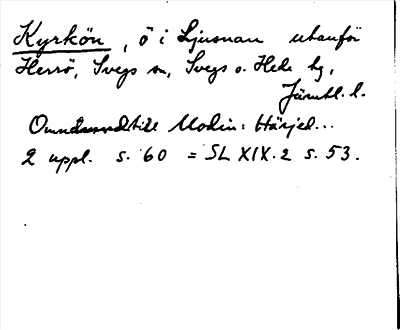 Kyrkön, ö i Ljusnan utanför
Herrö, Svegs sn, Svegs o. Hede tg,
Jämtl. l.
Modin: Härjed...
2 uppl. s. 60 = SL XIX.2 s. 53.